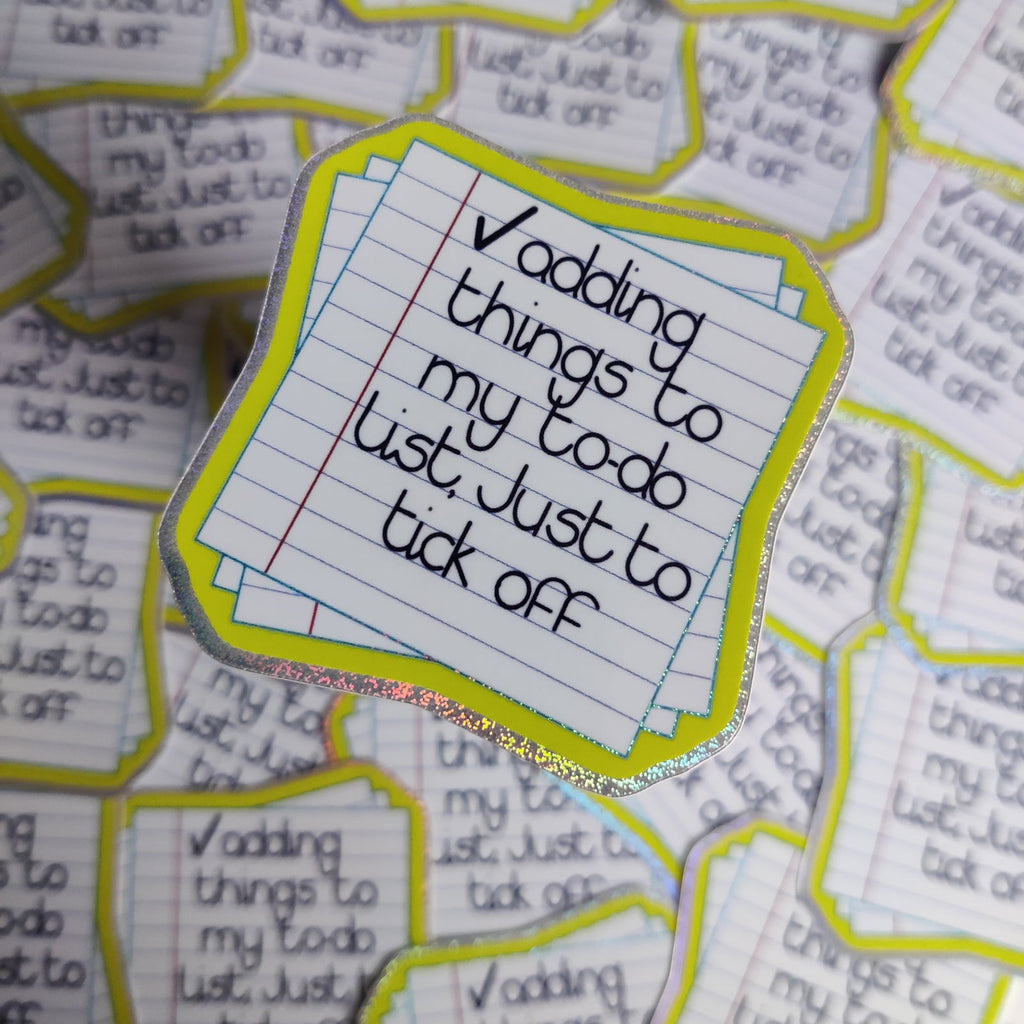 ✓adding
things to
my to-do
list, Just to
tick off